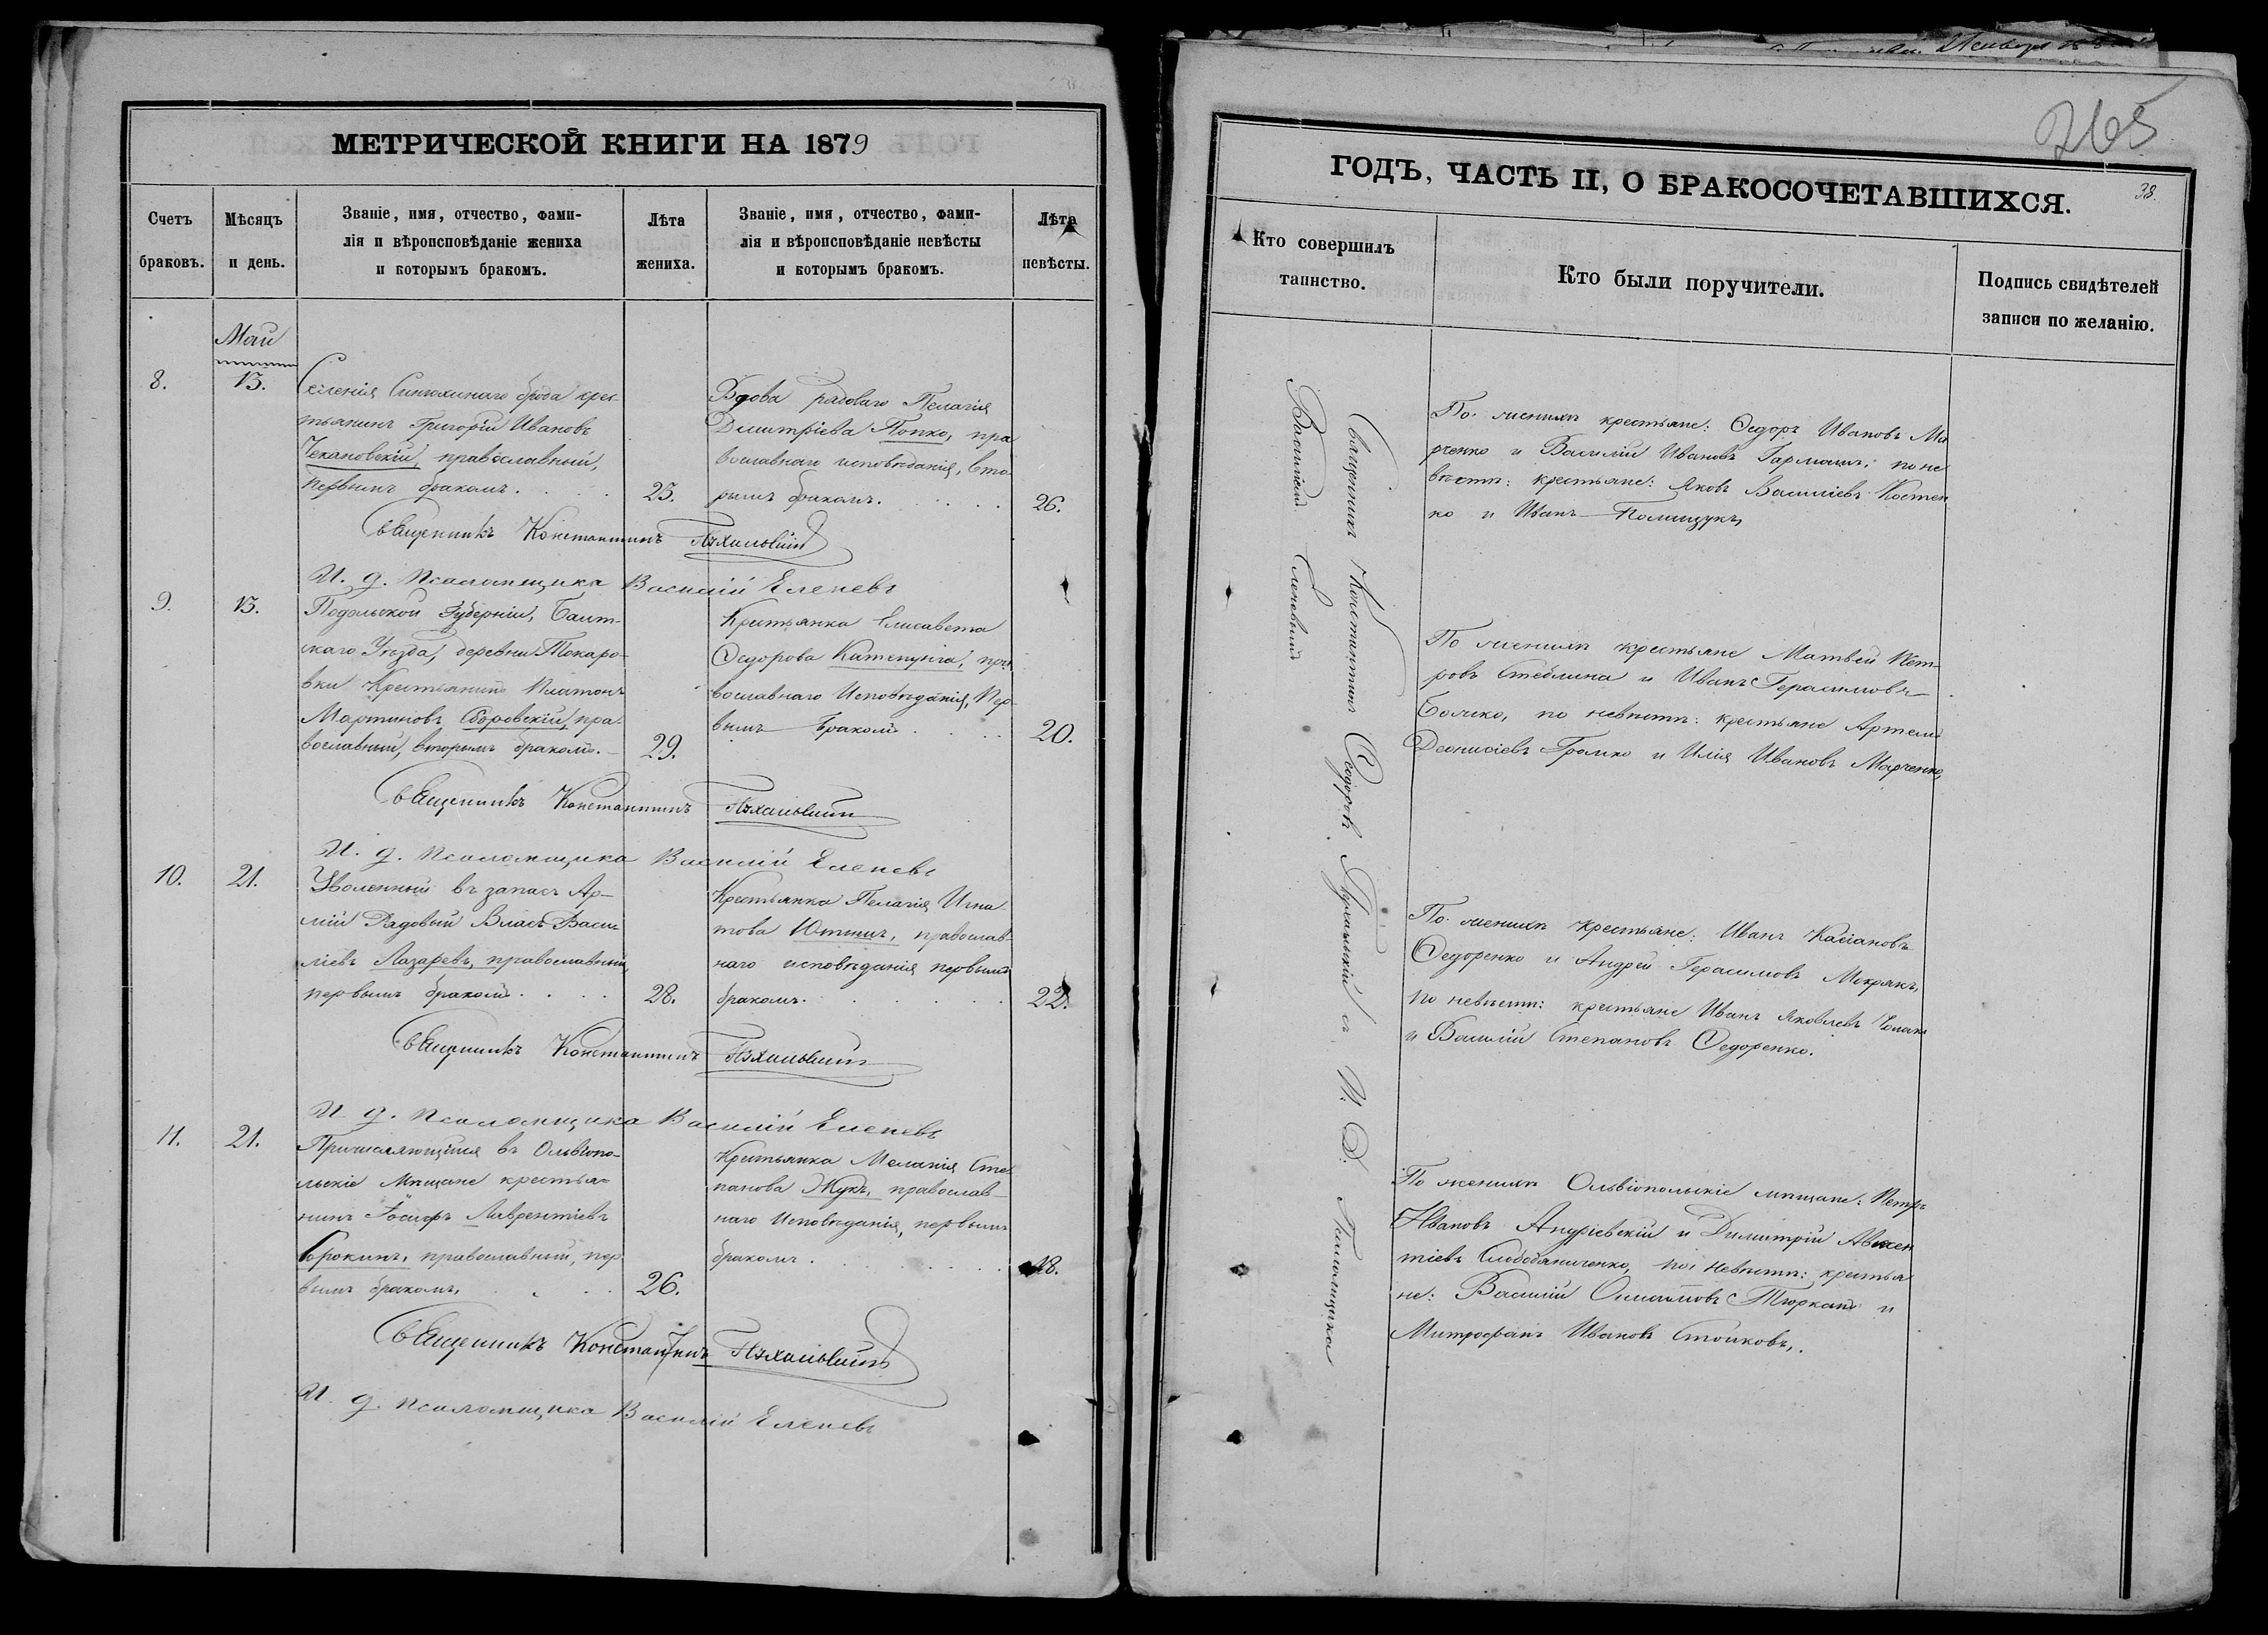 МЕТРИЧЕСКОЙ КНИГИ НА 1879
Счетъ браковъ.
Мѣсяцъ и день.
Званіе, имя, отчество, фами-
лія и вѣроисповѣданіе жениха
и которымъ бракомъ.
Лѣта
жениха.
Званіе, имя, отчество, фами-
лія и вѣроисповѣданіе невѣсты
и которымъ бракомъ.
Лѣта
невѣсты.
Май
8.
13.
Селенія Синюхинаго брода крес-
тьянинъ Григорій Ивановъ
Чекановскій, православный,
первымъ бракомъ.
25.
Вдова рядоваго Пелагія
Димитріева Попко, пра
вославнаго исповѣданія, вто-
рымъ бракомъ.
26.
Священникъ Константинъ
И. д. Псаломщика Василій Еленевъ
9.
13.
Подольской Губерніи, Балт-
скаго Уѣзда, деревни Токаро-
вки Крестьянинъ Платонъ
Мартиновъ Сборовскій, пра-
вославный, вторымъ бракомъ.
29.
Крестьянка Елисавета
Ѳедорова пра
вославнаго Исповѣданія, Пер-
вымъ бракомъ
20.
Священникъ Константинъ
И. д. Псаломщика Василій Еленевъ
10.
21.
Уволенный въ запасъ Ар-
мій Рядовый Власъ Васи
ліевъ Лазаревъ, православный,
первымъ бракомъ.
28.
Крестьянка Пелагія Игна
това православ-
наго исповѣданія первымъ
бракомъ.
22.
Священникъ Константинъ
И. д. Псаломщика Василій Еленевъ
11.
21.
Причисляющійся въ Ольвіопо-
льскіе Мѣщане крестья-
нинъ Іосифъ Лаврентіевъ
Сорокинъ, православный, пер
вымъ бракомъ,
26.
Крестьянка Меланія Сте-
панова Жукъ, православ-
наго Исповѣданія, первымъ
бракомъ.
18.
Священникъ Константинъ
И. д. Псаломщика Василій Еленевъ
265
ГОДЪ, ЧАСТЬ II, О БРАКОСОЧЕТАВШИХСЯ.
38.
Кто совершилъ
таинство.
Кто были поручители.
Подпись свидѣтелей
записи по желанію.
Священникъ Константинъ Ѳедоровъ съ И: Д: Псаломщика
Василіемъ
По женихѣ крестьяне: Ѳедоръ Ивановъ Ма
рченко и Василій Ивановъ Гармашъ; по не
вѣстѣ: крестьяне: Яковъ Василіевъ Костен
ко и Иванъ Полищукъ,
По женихѣ крестьяне Матвей Пет-
ровъ Стеблина и Иванъ Герасимовъ
по невѣстѣ: крестьяне Артемъ
Деонисіевъ Громко и Илія Ивановъ Марченко,
По женихѣ крестьяне: Иванъ Касіановъ
Ѳедоренко и Андрей Герасимовъ Мокрякъ,
по невѣстѣ: крестьяне Иванъ Яковлевъ
и Василій Степановъ Ѳедоренко.
По женихѣ Ольвіопольскіе мѣщане: Петръ
Ивановъ Андріевскій и Димитрій Авксен
тіевъ Слободяниченко, по невѣстѣ: крестья
не: Василій Тюркатъ и
Митрофанъ Ивановъ Стойковъ,.